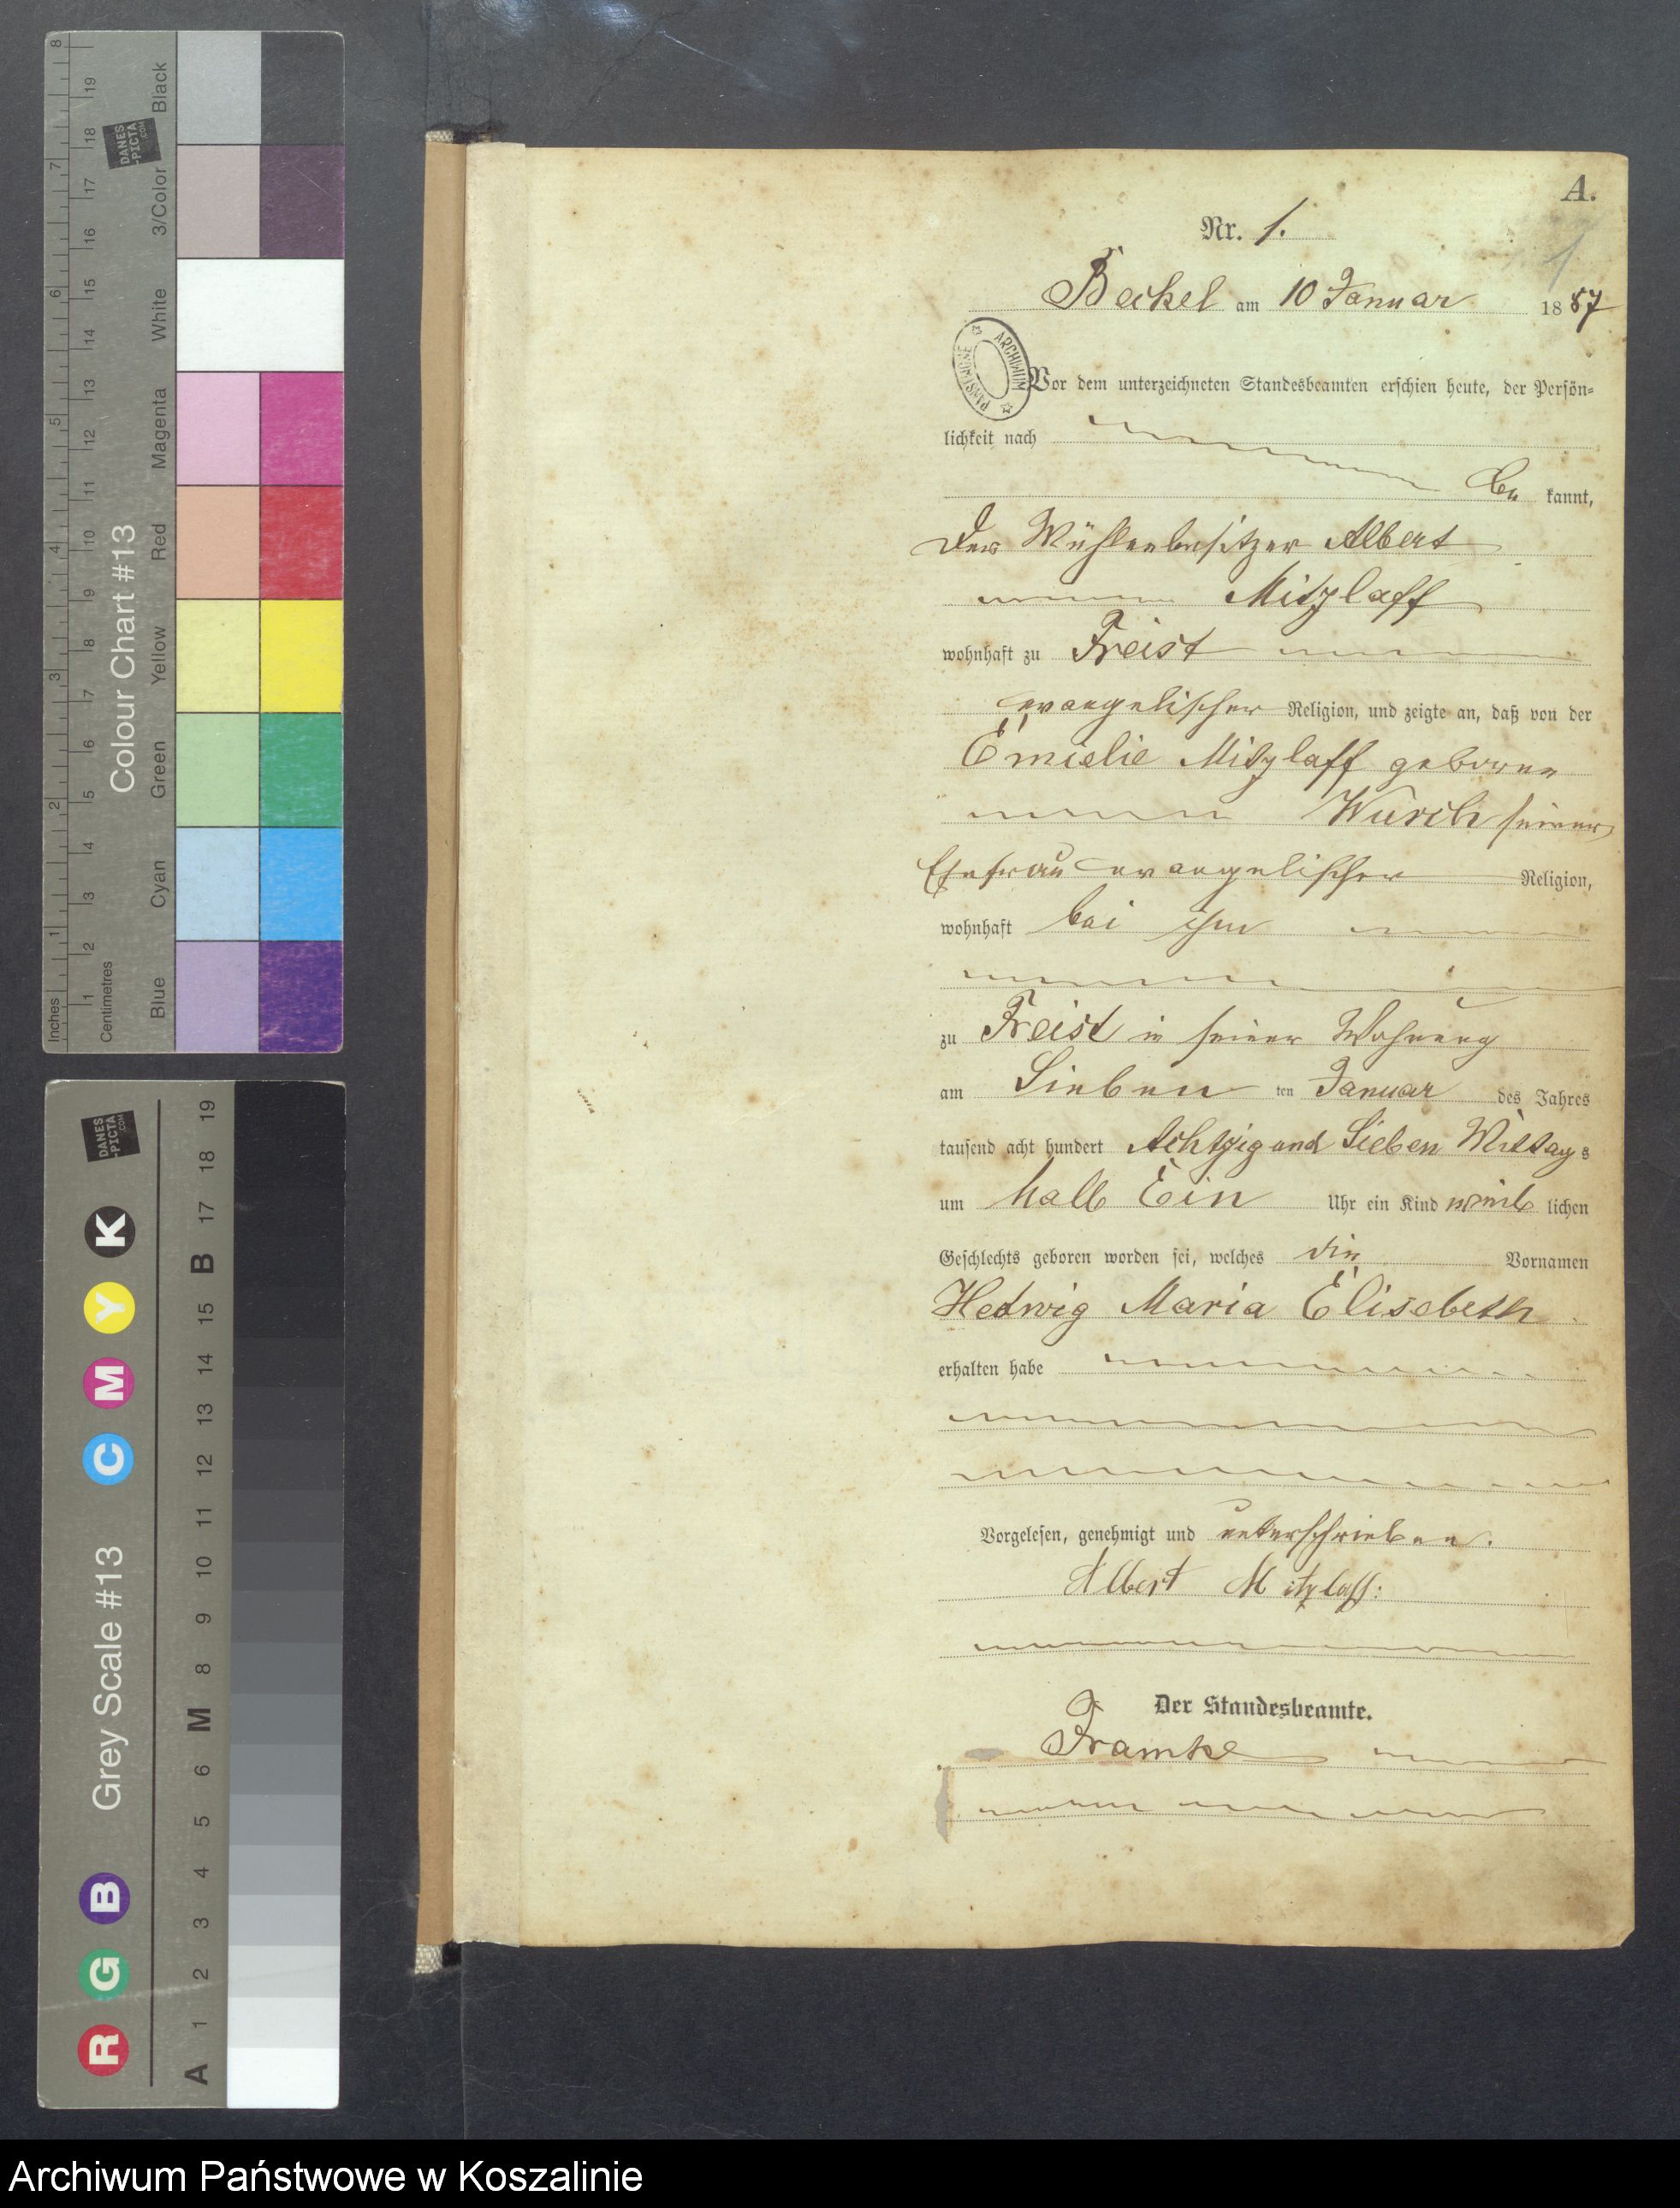 A.
1
Nr. 1.
Beckel am 10 Januar 1887
ARCHIWUM PAŃSTWOWE
Vor dem unterzeichneten Standesbeamten erschien heute, der Persön=
lichkeit nach
be kannt,
Der Mühlenbesitzer Albert
Mitzlaff
wohnhaft zu Freist
evangelischer Religion, und zeigte an, daß von der
Emielie Mitzlaff geborne
seiner
Ehefrau evangelischer Religion,
wohnhaft bei ihm
zu Freist in seiner Wohnung
am Sieben ten Januar des Jahres
tausend acht hundert Achtzig und Sieben Mittags
um halb Ein Uhr ein Kind weib lichen
Geschlechts geboren worden sei, welches die Vornamen
Hedwig Maria Elisebeth
erhalten habe
Vorgelesen, genehmigt und unterschrieben.
Albert Mitzlaff:
Der Standesbeamte.
Framke
Inches 1 2 3 4 5 6 7 8
Centimetres 1 2 3 4 5 6 7 8 9 10 11 12 13 14 15 16 17 18 19
Colour Chart #13
Blue Cyan Green Yellow Red Magenta White 3/Color Black
DANES
-PICTA
.COM
Grey Scale #13
R G B C M Y K
A 1 2 3 4 5 6 M 8 9 10 11 12 13 14 15 B 17 18 19
DANES
-PICTA
.COM
Archiwum Państwowe w Koszalinie